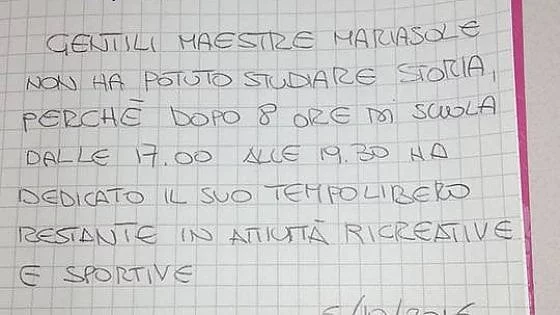 GENTILI MAESTRE MARIASOLE
NON HA POTUTO STUDIARE STORIA,
PERCHÉ DOPO 8 ORE DI SCUOLA
DALLE 17.00 ALLE 19.30 HA
DEDICATO IL SUO TEMPO LIBERO
RESTANTE IN ATTIVITÀ RICREATIVE
E SPORTIVE